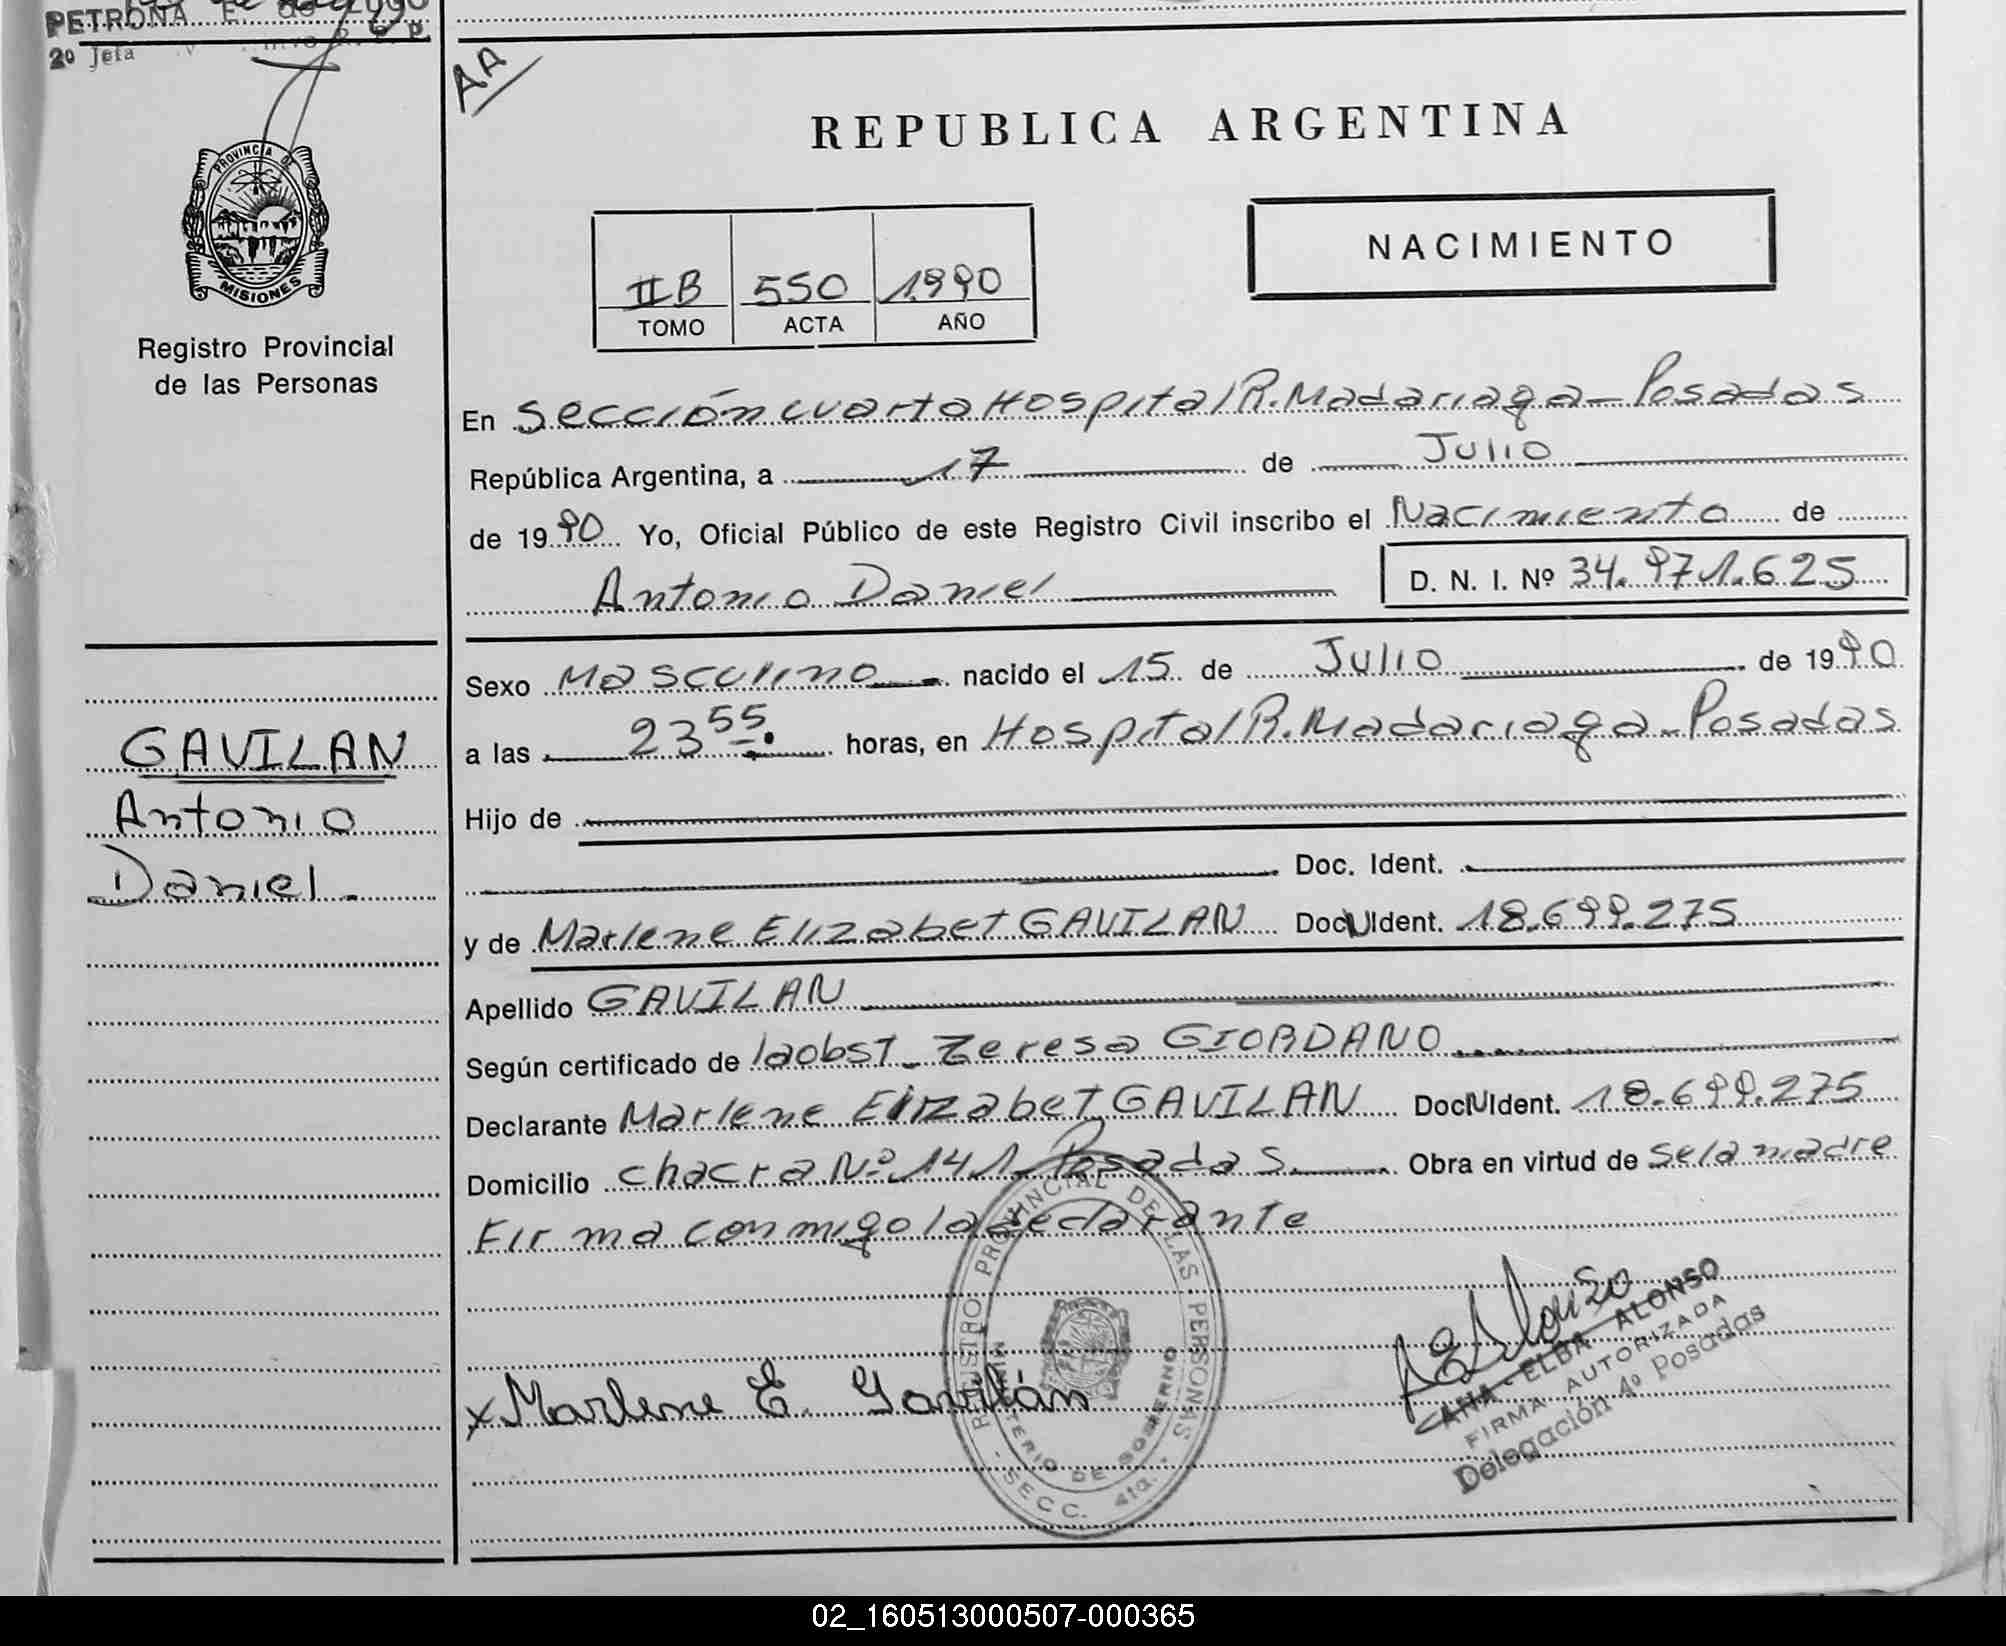 PETRONA E. de LUGO
2º Jefa
AA
PROVINCIA DE
MISIONES
Registro Provincial
de las Personas
REPUBLICA ARGENTINA
NACIMIENTO
IIB 550 1990
TOMO ACTA AÑO
En Sección cuarta Hospital R. Madariaga - Posadas
República Argentina, a 17 de Julio
de 1990 Yo, Oficial Público de este Registro Civil inscribo el Nacimiento de
Antonio Daniel D. N. I. Nº 34.971.625
Sexo Masculino nacido el 15 de Julio de 1990
a las 23 55 horas, en Hospital R. Madariaga - Posadas
Hijo de
Doc. Ident.
y de Marlene Elizabet GAVILAN Doc N Ident. 18.699.275
Apellido GAVILAN
Según certificado de la obst. Teresa GIORDANO
Declarante Marlene Elizabet GAVILAN Doc N Ident. 18.699.275
Domicilio chacra Nº 141 - Posadas Obra en virtud de se la madre
Firma conmigo la declarante
GAVILAN
Antonio
Daniel.
x Marlene E. Gavilán
REGISTRO PROVINCIAL DE LAS PERSONAS
MINISTERIO DE GOBIERNO
- SECC. 4ta. -
AEAlonso
ANA - ELBA ALONSO
FIRMA AUTORIZADA
Delegación 4º Posadas
02_160513000507-000365